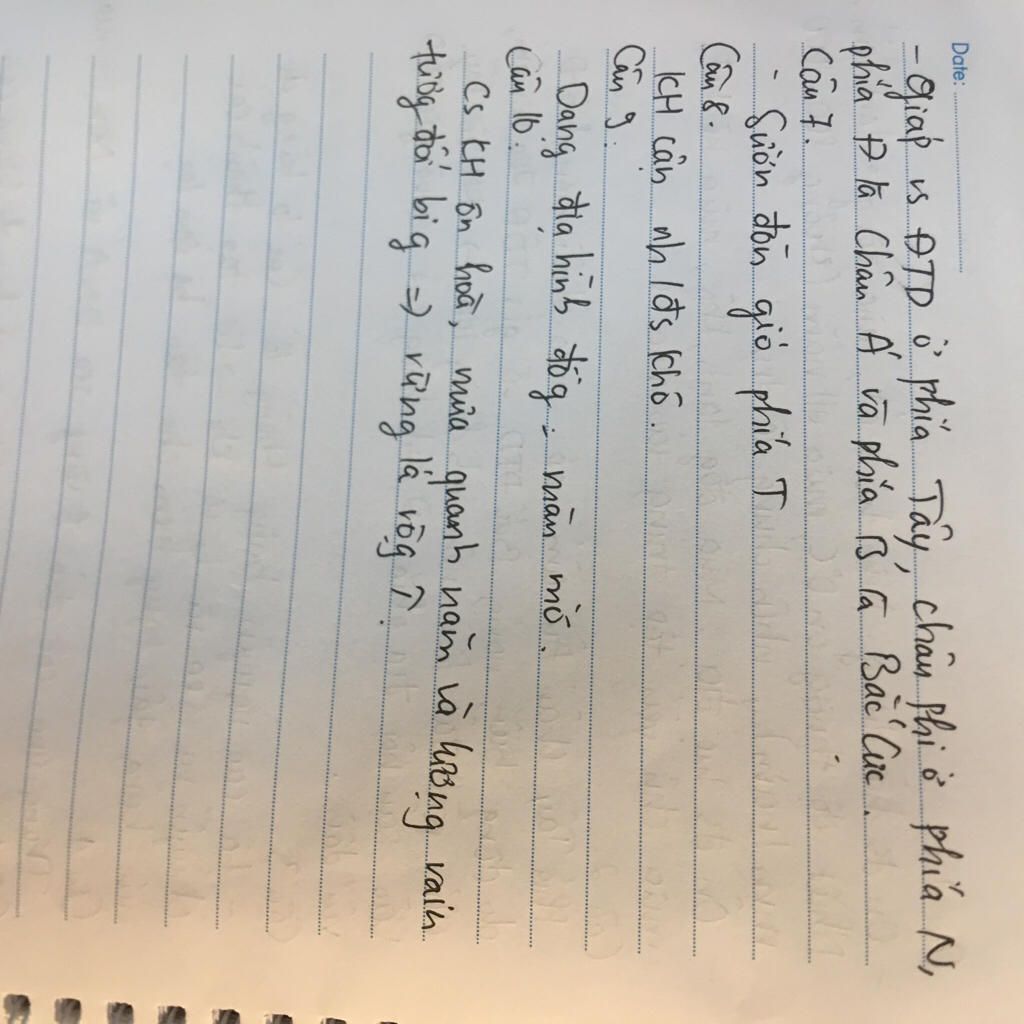 Date:
- Giáp vs ĐTD ở phía Tây, châu phi ở phía N,
phía Đ là Châu Á và phía B là Bắc Cực.
Câu 7.
- Sườn đón gió phía T
Câu 8.
KH cận nh/đs khô.
Câu 9.
Dạng địa hình đôg: màn mỏ.
Câu 10.
Cs KH ôn hoà, mưa quanh năm và lượng rain
tương đối big => rừng lá rộg ↑.